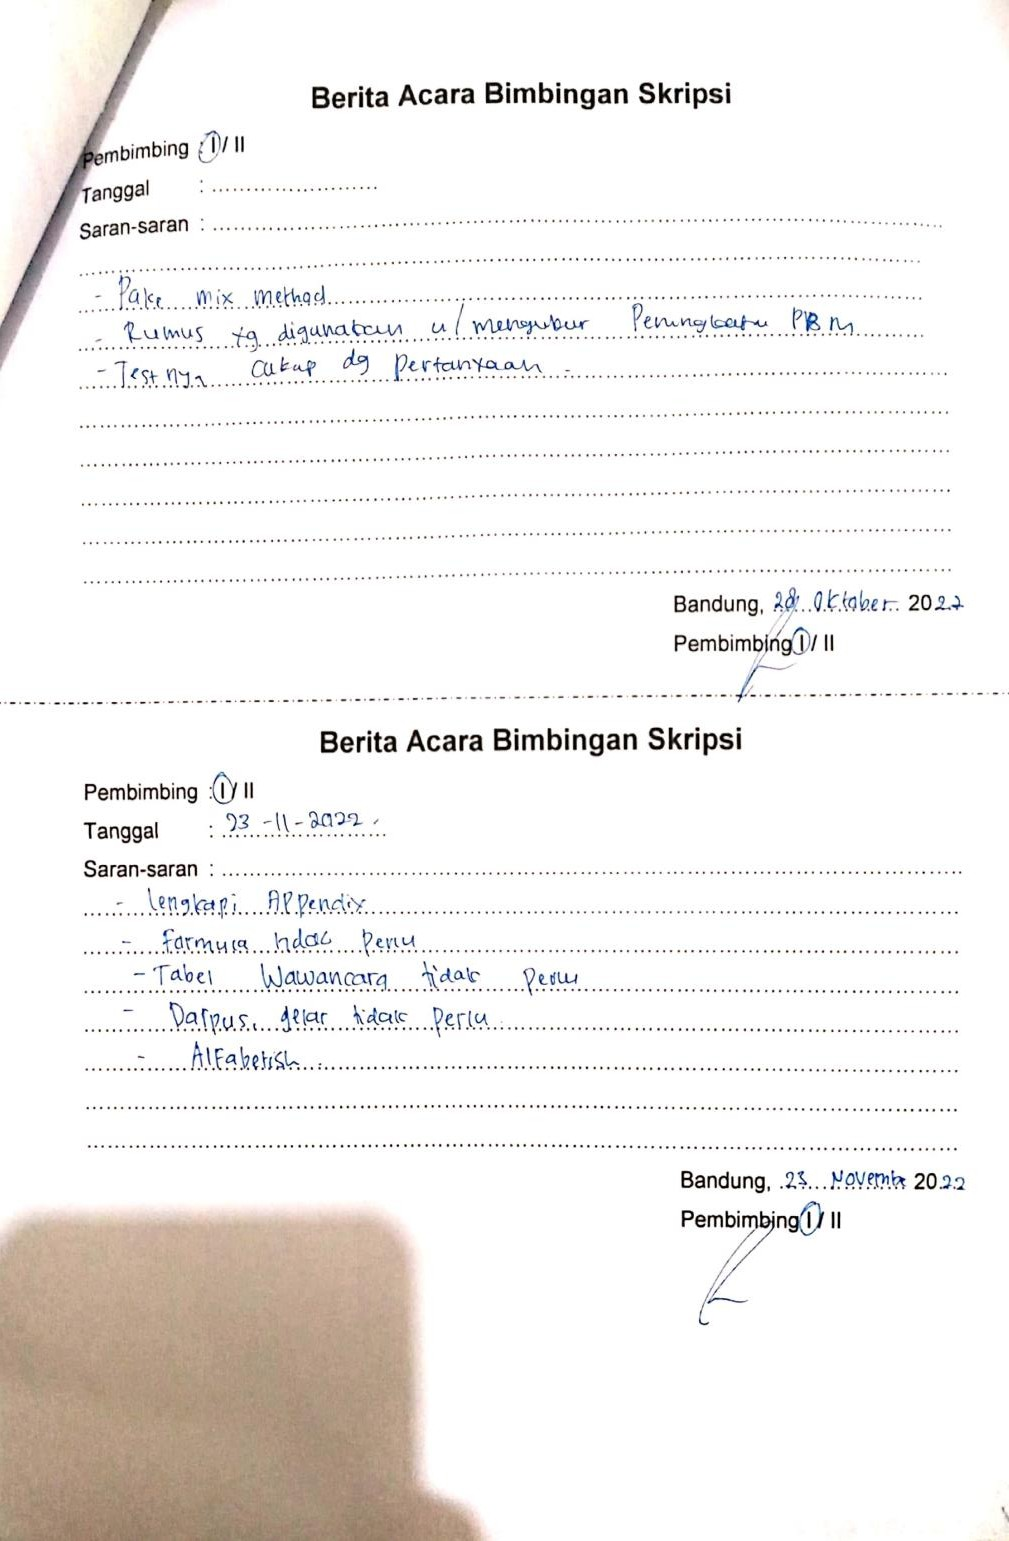 Berita Acara Bimbingan Skripsi
Pembimbing : I / II
Tanggal : ........................
Saran-saran : ........................
- Pake mix method
- Rumus yg digunakan u/ mengukur Peningkatan PBM
- Testnya cukup dg Pertanyaan.
Bandung, 28 Oktober 2022
Pembimbing I / II
Berita Acara Bimbingan Skripsi
Pembimbing : I / II
Tanggal : 23-11-2022
Saran-saran : ........................
- Lengkapi Appendix
- Formula tidak perlu
- Tabel Wawancara tidak perlu
- Dafpus, gelar tidak perlu
- Alfabetish.
Bandung, 23 Novembr 2022
Pembimbing I / II